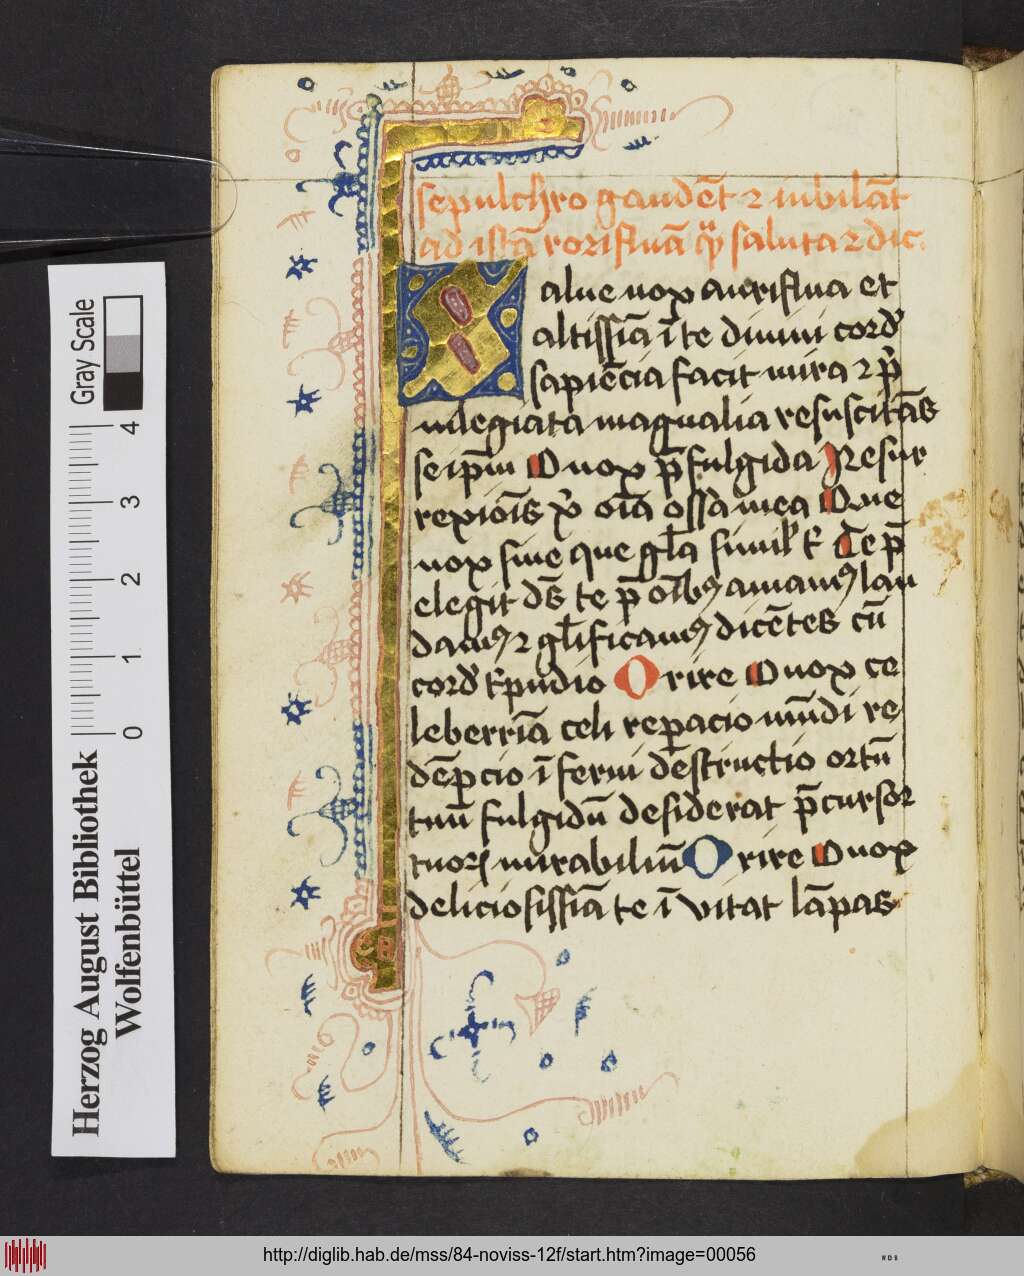 sepulchro gaudēt ⁊ iubilāt
ad istā rorifluā salutā⁊ dic.
Salue nox auriflua et
altissīa ī te diuini cord᷒
sapiēcia facit mira ⁊ p̄
uilegiata magnalia resuscitās
seip̄m O nox p̄fulgida Resur
rexiōis oīa ossa mea O ue
nox siue que gl̄a simil᷒ De p̄
elegit ds̄ te p̄ oībꝰ amamꝰ lau
damꝰ ⁊ gl̄ificamꝰ dicētes cū
cord᷒ t͛pudio Orire O nox ce
leberrīa celi rep̲acio mūdi re
dēpcio īferni destructio ortū
tuū fulgidū desiderat p̄cursor
tuoꝝ mirabiliū Orire O nox
deliciosissīa te īuitat lāpas
Gray Scale
4
3
2
1
0
Herzog August Bibliothek
Wolfenbüttel
http://diglib.hab.de/mss/84-noviss-12f/start.htm?image=00056